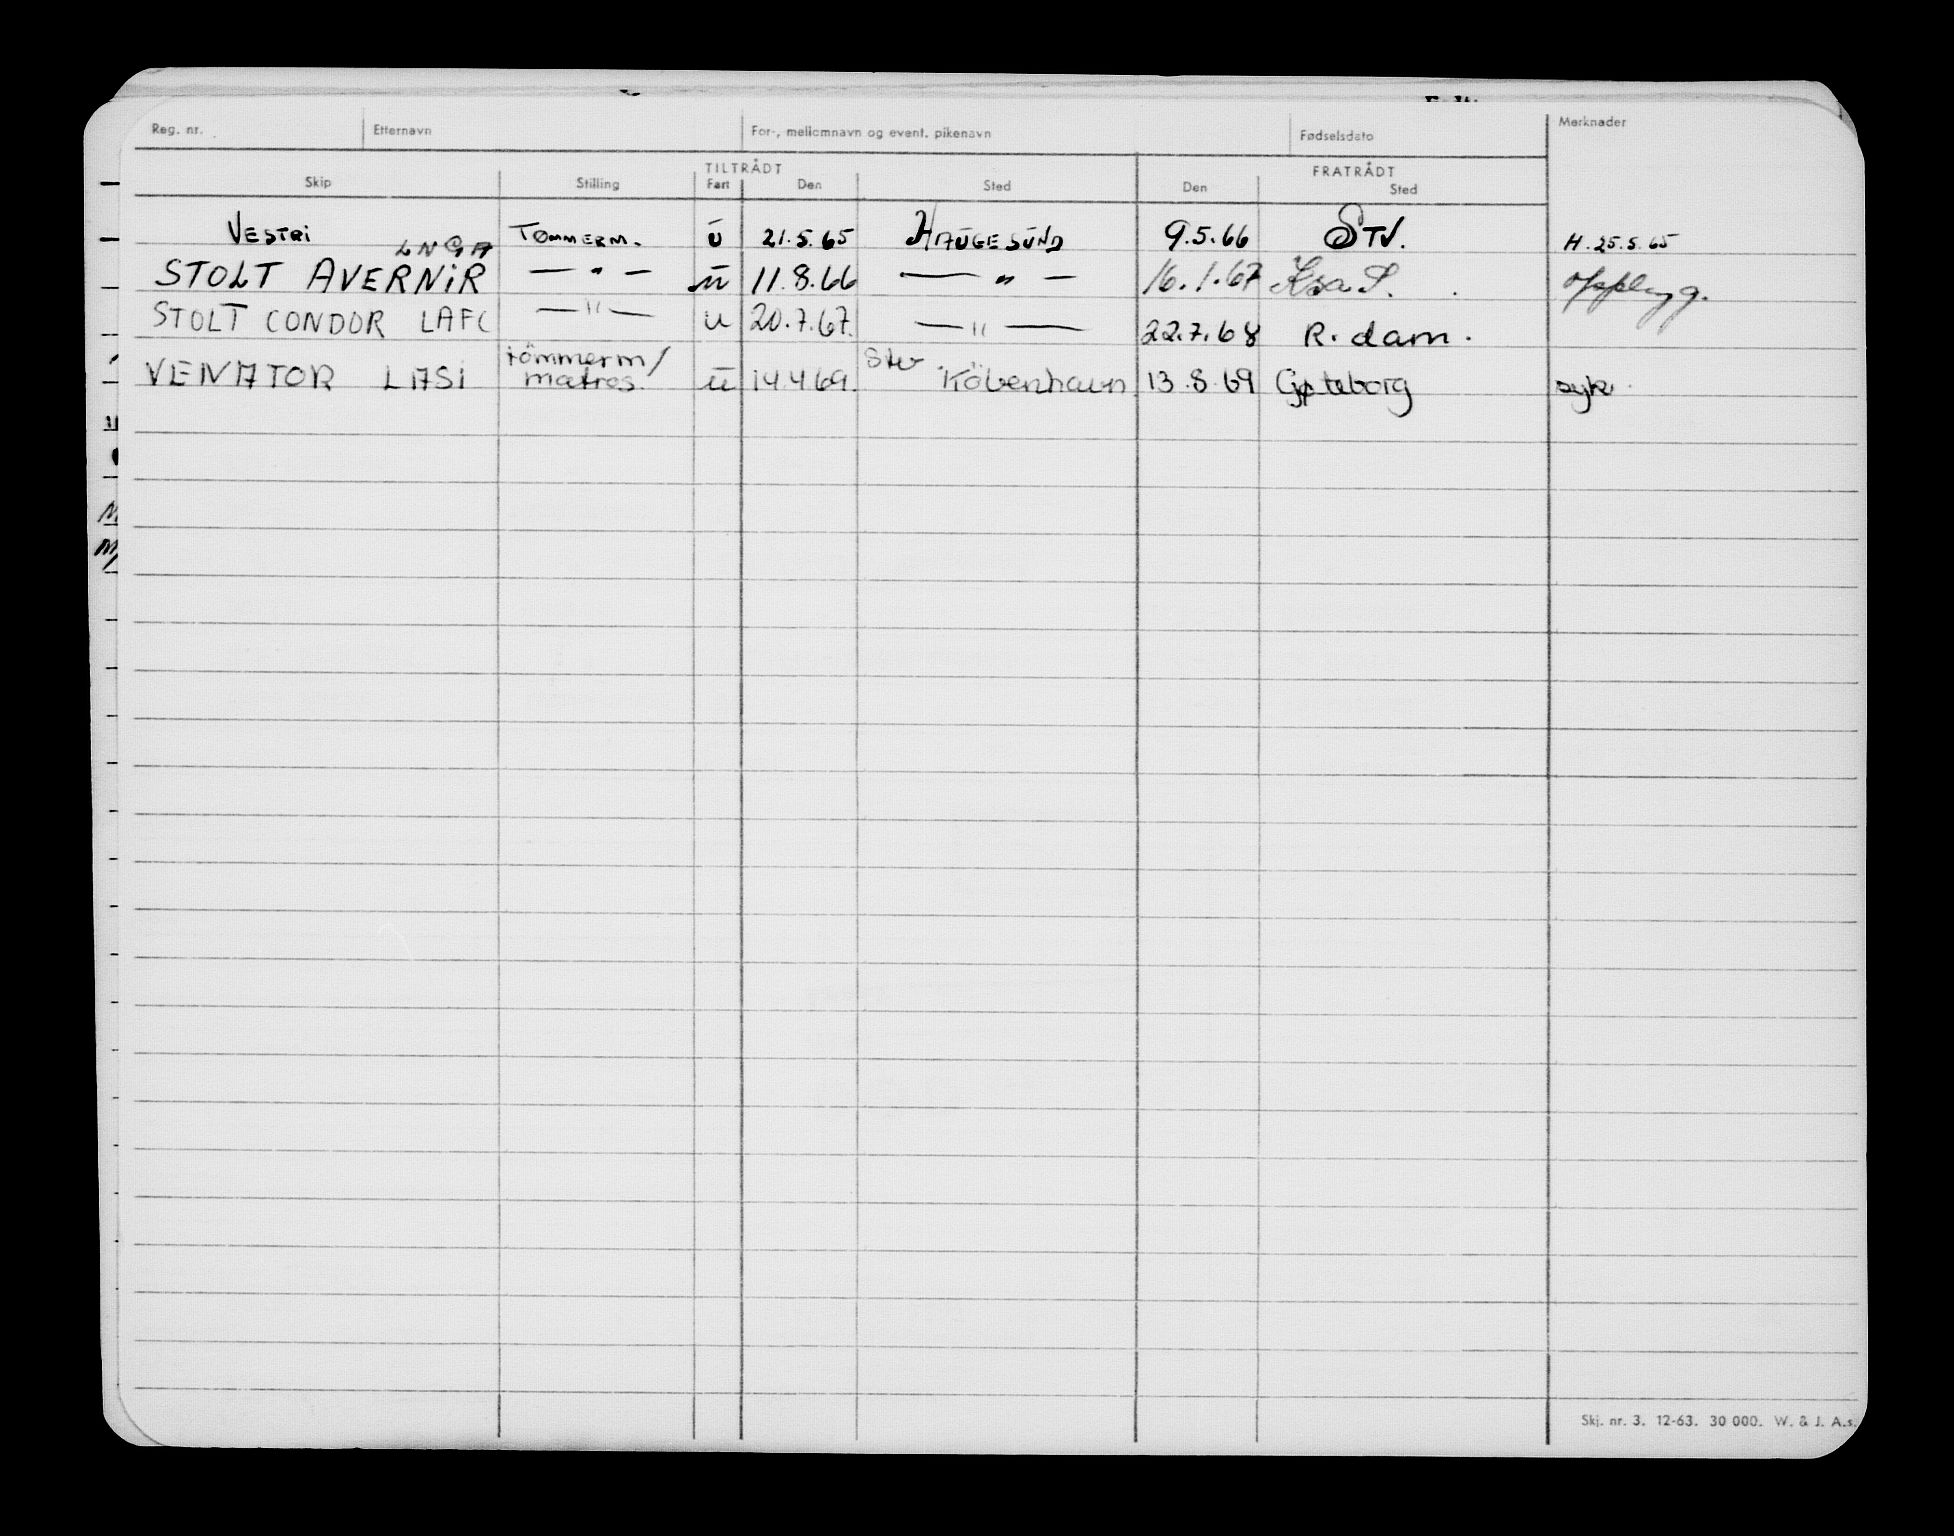 Reg. nr. Etternavn For-, mellomnavn og event. pikenavn Fødselsdato Merknader
TILTRÅDT FRATRÅDT
Skip Stilling Fart Den Sted Den Sted
VESTRI TØMMERM. ū 21.5.65 HAUGESUND 9.5.66 STV. H. 25.5.65
LNGA
STOLT AVERNIR — " — ū 11.8.66 — " — 16.1.67 Kra S. oppleyg.
STOLT CONDOR LAFC — " — u 20.7.67. — " — 22.7.68 R. dam.
VENATOR LASI tömmerm/ ū 14.4.69. Stv. Köbenhavn 13.8.69 Gjøteborg syk.
matros.
Skj. nr. 3. 12-63. 30 000. W. & J. A.s.